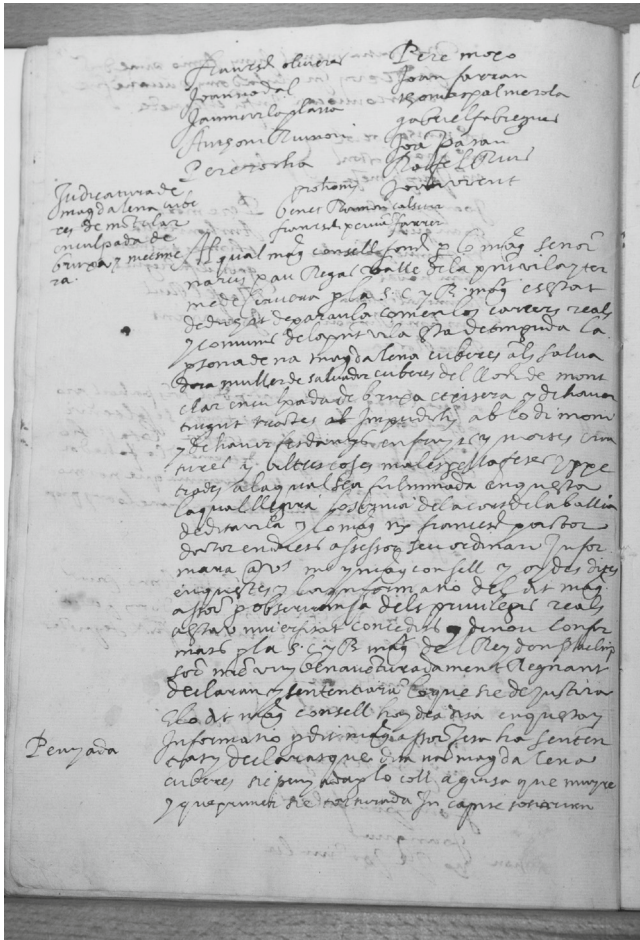 Francesch oliveres
Joan nadal
Jaume vilaplana
Antoni Ramon
Pere rocha
Pere moço
Joan farran
thomas palmerola
gabriel fabregues
Joa. paran
Rafel Rius
Joan vivent
prohoms
benet Ramon calseter
francesch pereu farrer
Judicatura de
magdalena cube
res de mõtclar
enculpada de
bruxa y metzine
ra.
Al qual mag.ch consell fonch p lo mag.ch senor
narcis pau Regas balle de la pnt vila y ter
me de Cervera p la S. C. y R. mag.t es estat
dedugit de paraula com en los carcers reals
y comuns de la pnt vila esta detinguda la
psona de na magdalena cuberes als salva
dora muller de salvador cuberes del lloch de mont
clar enculpada de bruxa etzisera y de haver
tingut tractes ab lo dimoni
y de haver fets danys en fruyts y mortes cria
tures y altres coses males p ella fetes y ppe
trades a la qual sea fulminada enquesta
la qual llegira lo scriva de la cort de la ballia
de dita vila y lo mag.ch m.r francesch pastor
doctor en drets assessor seu ordinari Infor
mara a v.s m.s y mag.ch consell y oydes dites
enquestes y la informatio del dit mag.ch
assor p observansa dels privilegis reals
a esta universitat concedits y de nou confir
mats p la S. C. y R. mag.t del Rey don phelip
s.or nre vuy benaventuradament Regnant
declaran y sententiaran lo que sie de justicia
E lo dit mag.ch consell hoyda dita enquesta y
Informatio p dit mag.ch assor feta ha senten
ciat y declarat que dita na magdalena
cuberes sie penjada p lo coll de guisa que muyre
y que primer sie torturada In capite sociorum
Penjada